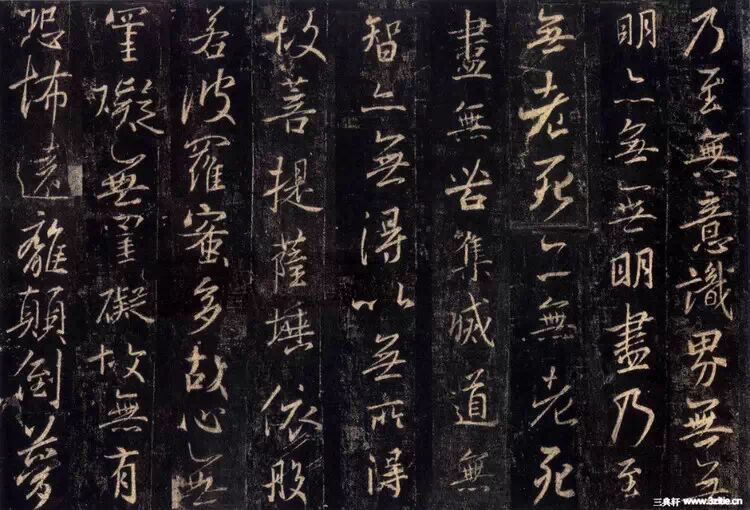 乃至無意識界無無
明亦無無明盡乃至
無老死亦無老死
盡無苦集滅道無
智亦無得以無所得
故菩提薩埵依般
若波羅蜜多故心無
罣礙無罣礙故無有
恐怖遠離顛倒夢
三典轩 www.3ztie.cn